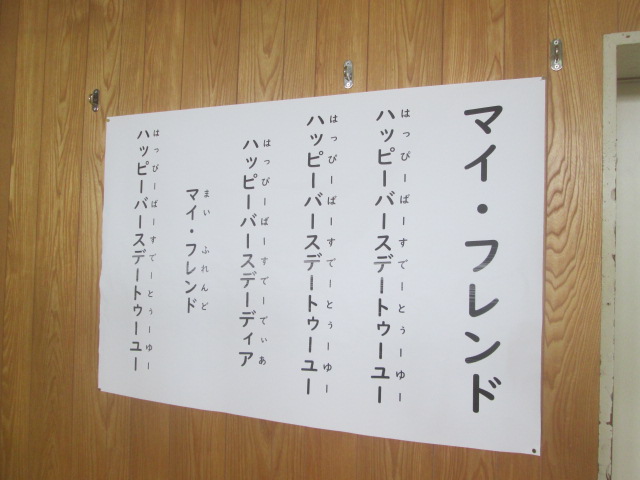 マイ・フレンド
はっぴーばーすでーとぅーゆー
ハッピーバースデートゥーユー
はっぴーばーすでーとぅーゆー
ハッピーバースデートゥーユー
はっぴーばーすでーでぃあ
ハッピーバースデーディア
まい ふれんど
マイ・フレンド
はっぴーばーすでーとぅーゆー
ハッピーバースデートゥーユー